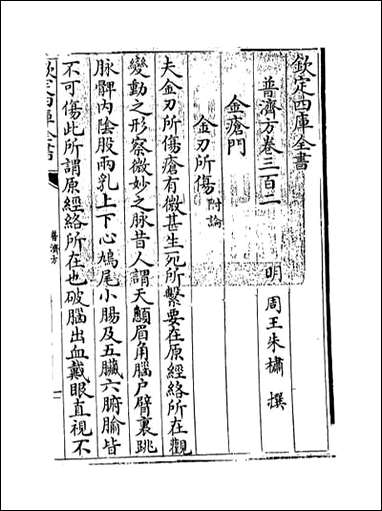 欽定四庫全書
普濟方卷三百二
明 周王朱橚 撰
金瘡門
金刃所傷附論
夫金刃所傷瘡有微甚生死所繫要在原經絡所在觀
變動之形察微妙之脉昔人謂天顱眉角腦户臂裏跳
脉髀内陰股兩乳上下心鳩尾小腸及五臟六腑腧皆
不可傷此所謂原經絡所在也破腦出血戴眼直視不
欽定四庫全書
普濟方
一